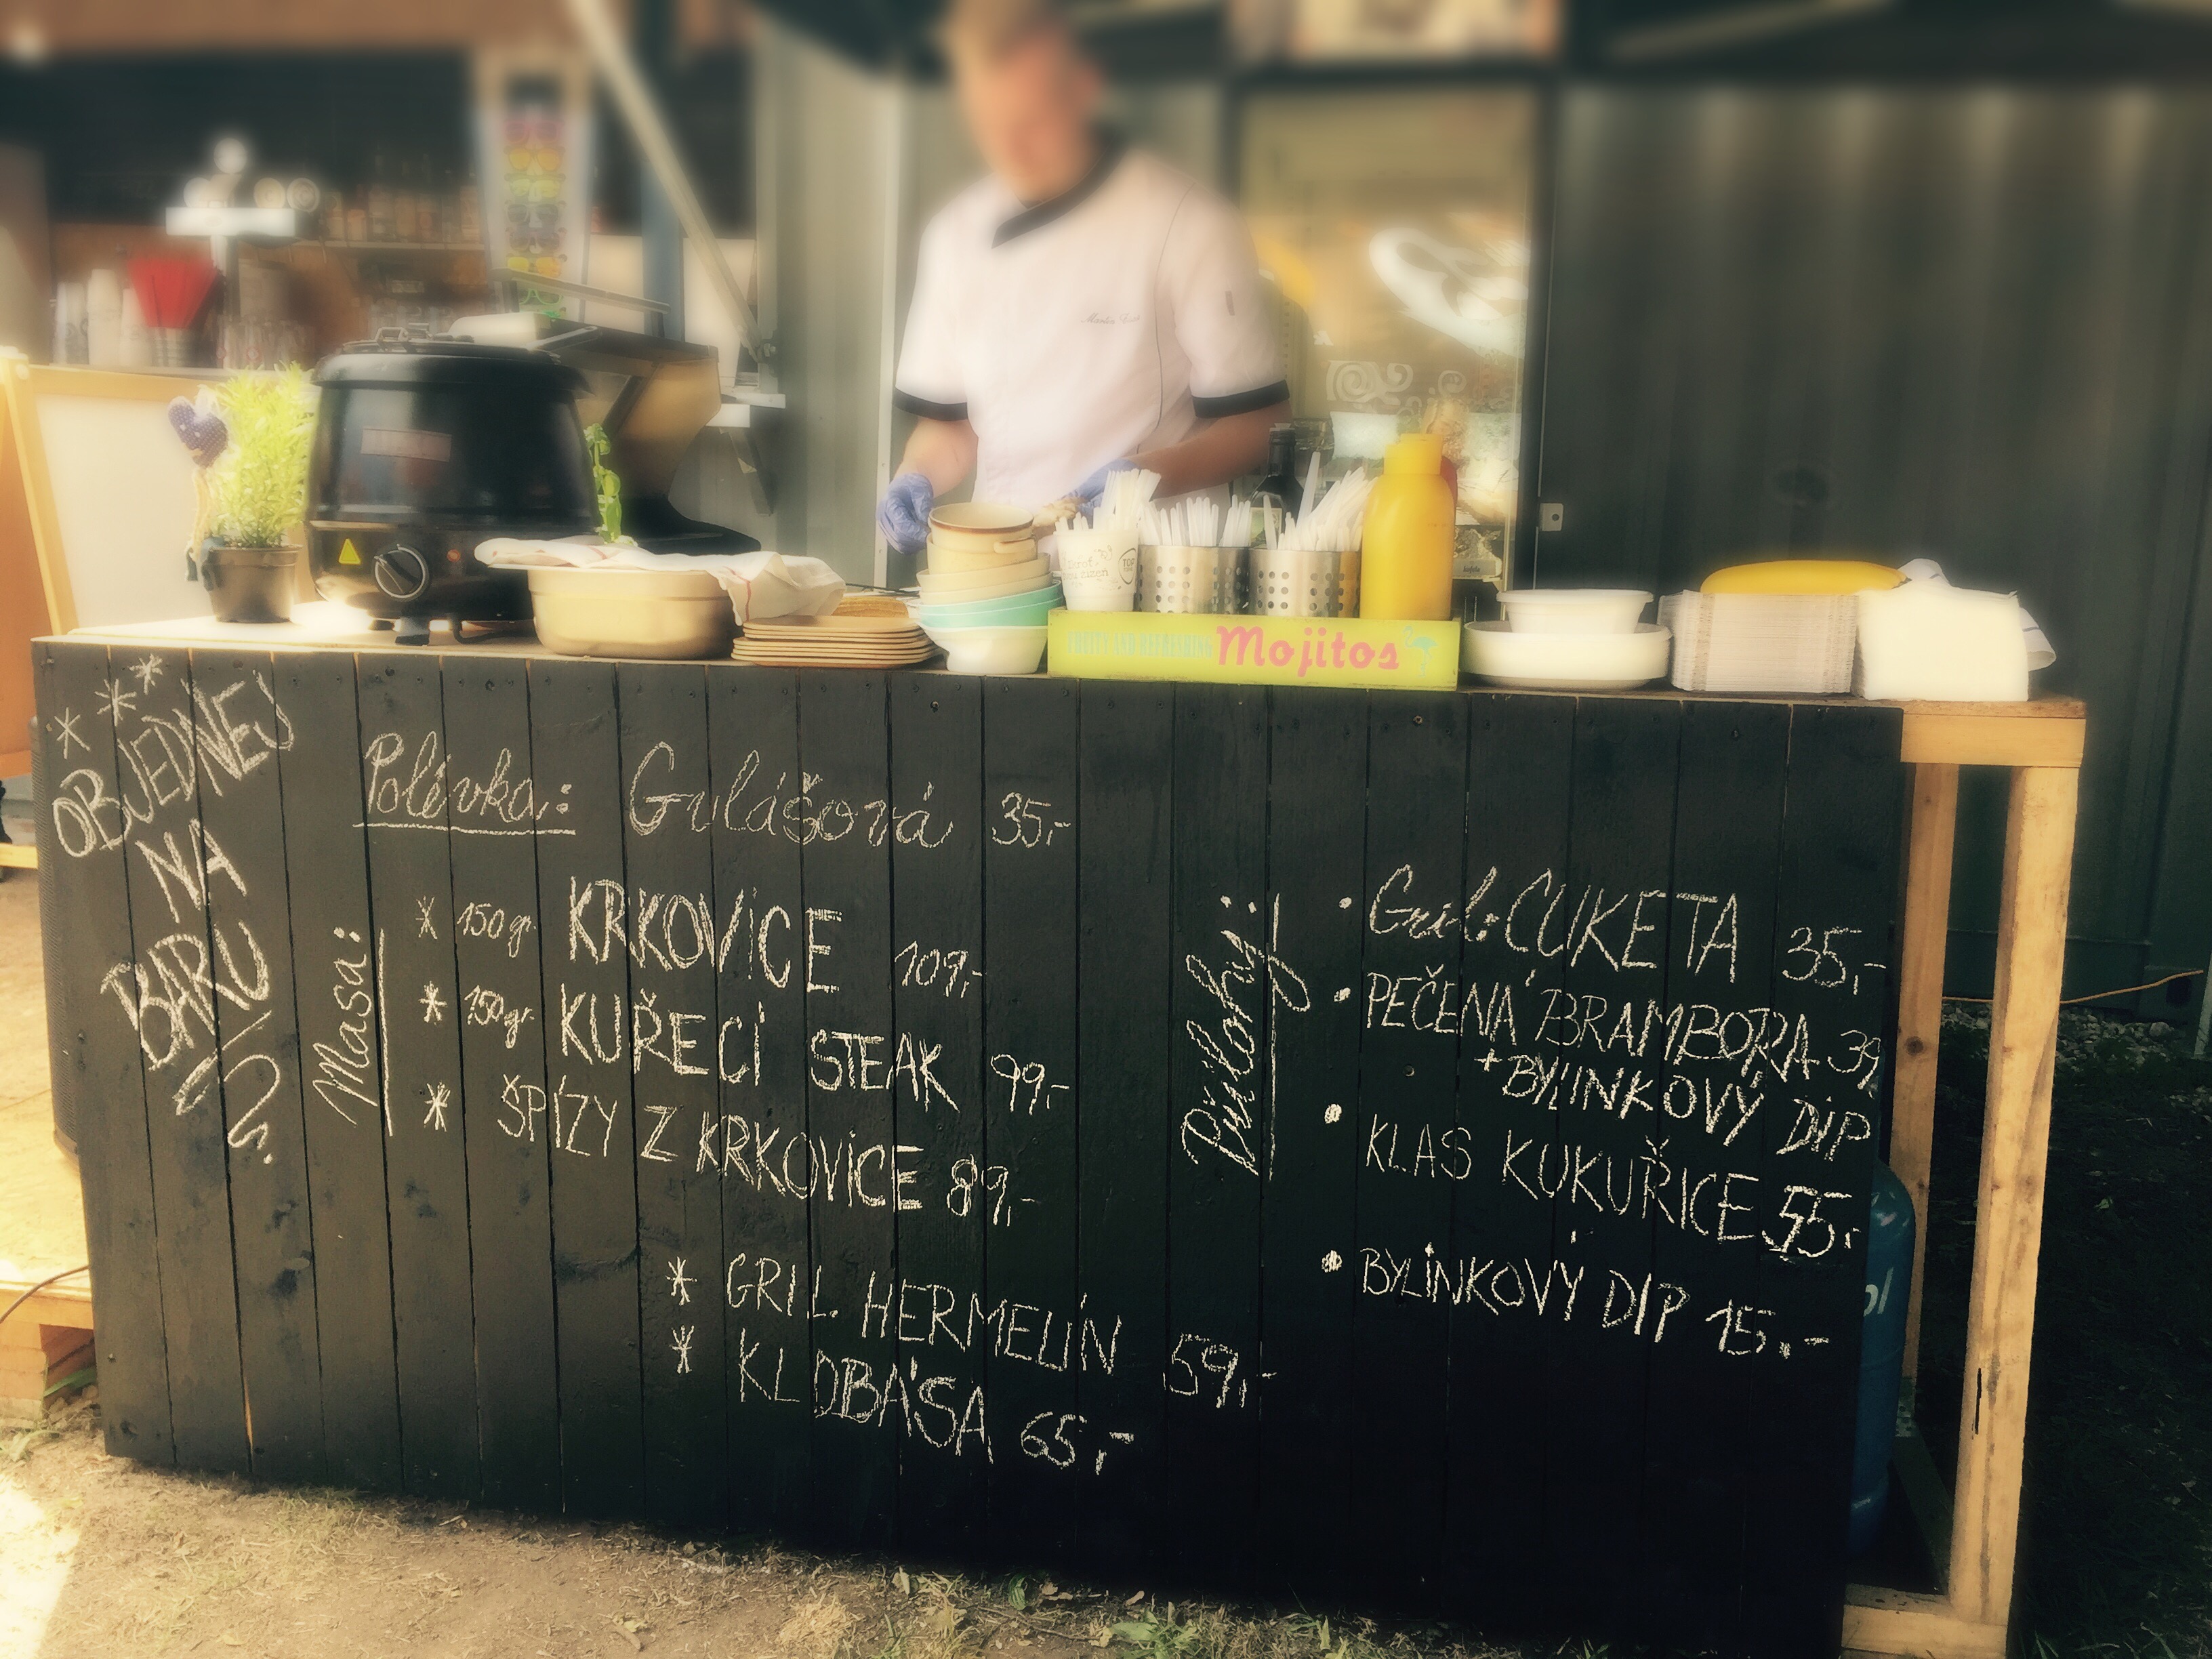 OBJEDNEJ
NA
BARU
Polévka: Gulášová 35,-
Masa:
150gr KRKOVICE 109,-
150gr KUŘECÍ STEAK 99,-
ŠPÍZY Z KRKOVICE 89,-
GRIL HERMELÍN 59,-
KLOBÁSA 65,-
Přílohy:
Gril: CUKETA 35,-
PEČENÁ BRAMBORA 39,
+BYLINKOVÝ DIP
KLAS KUKUŘICE 55,-
BYLINKOVÝ DIP 15,-
FRUITY AND REFRESHING Mojitos